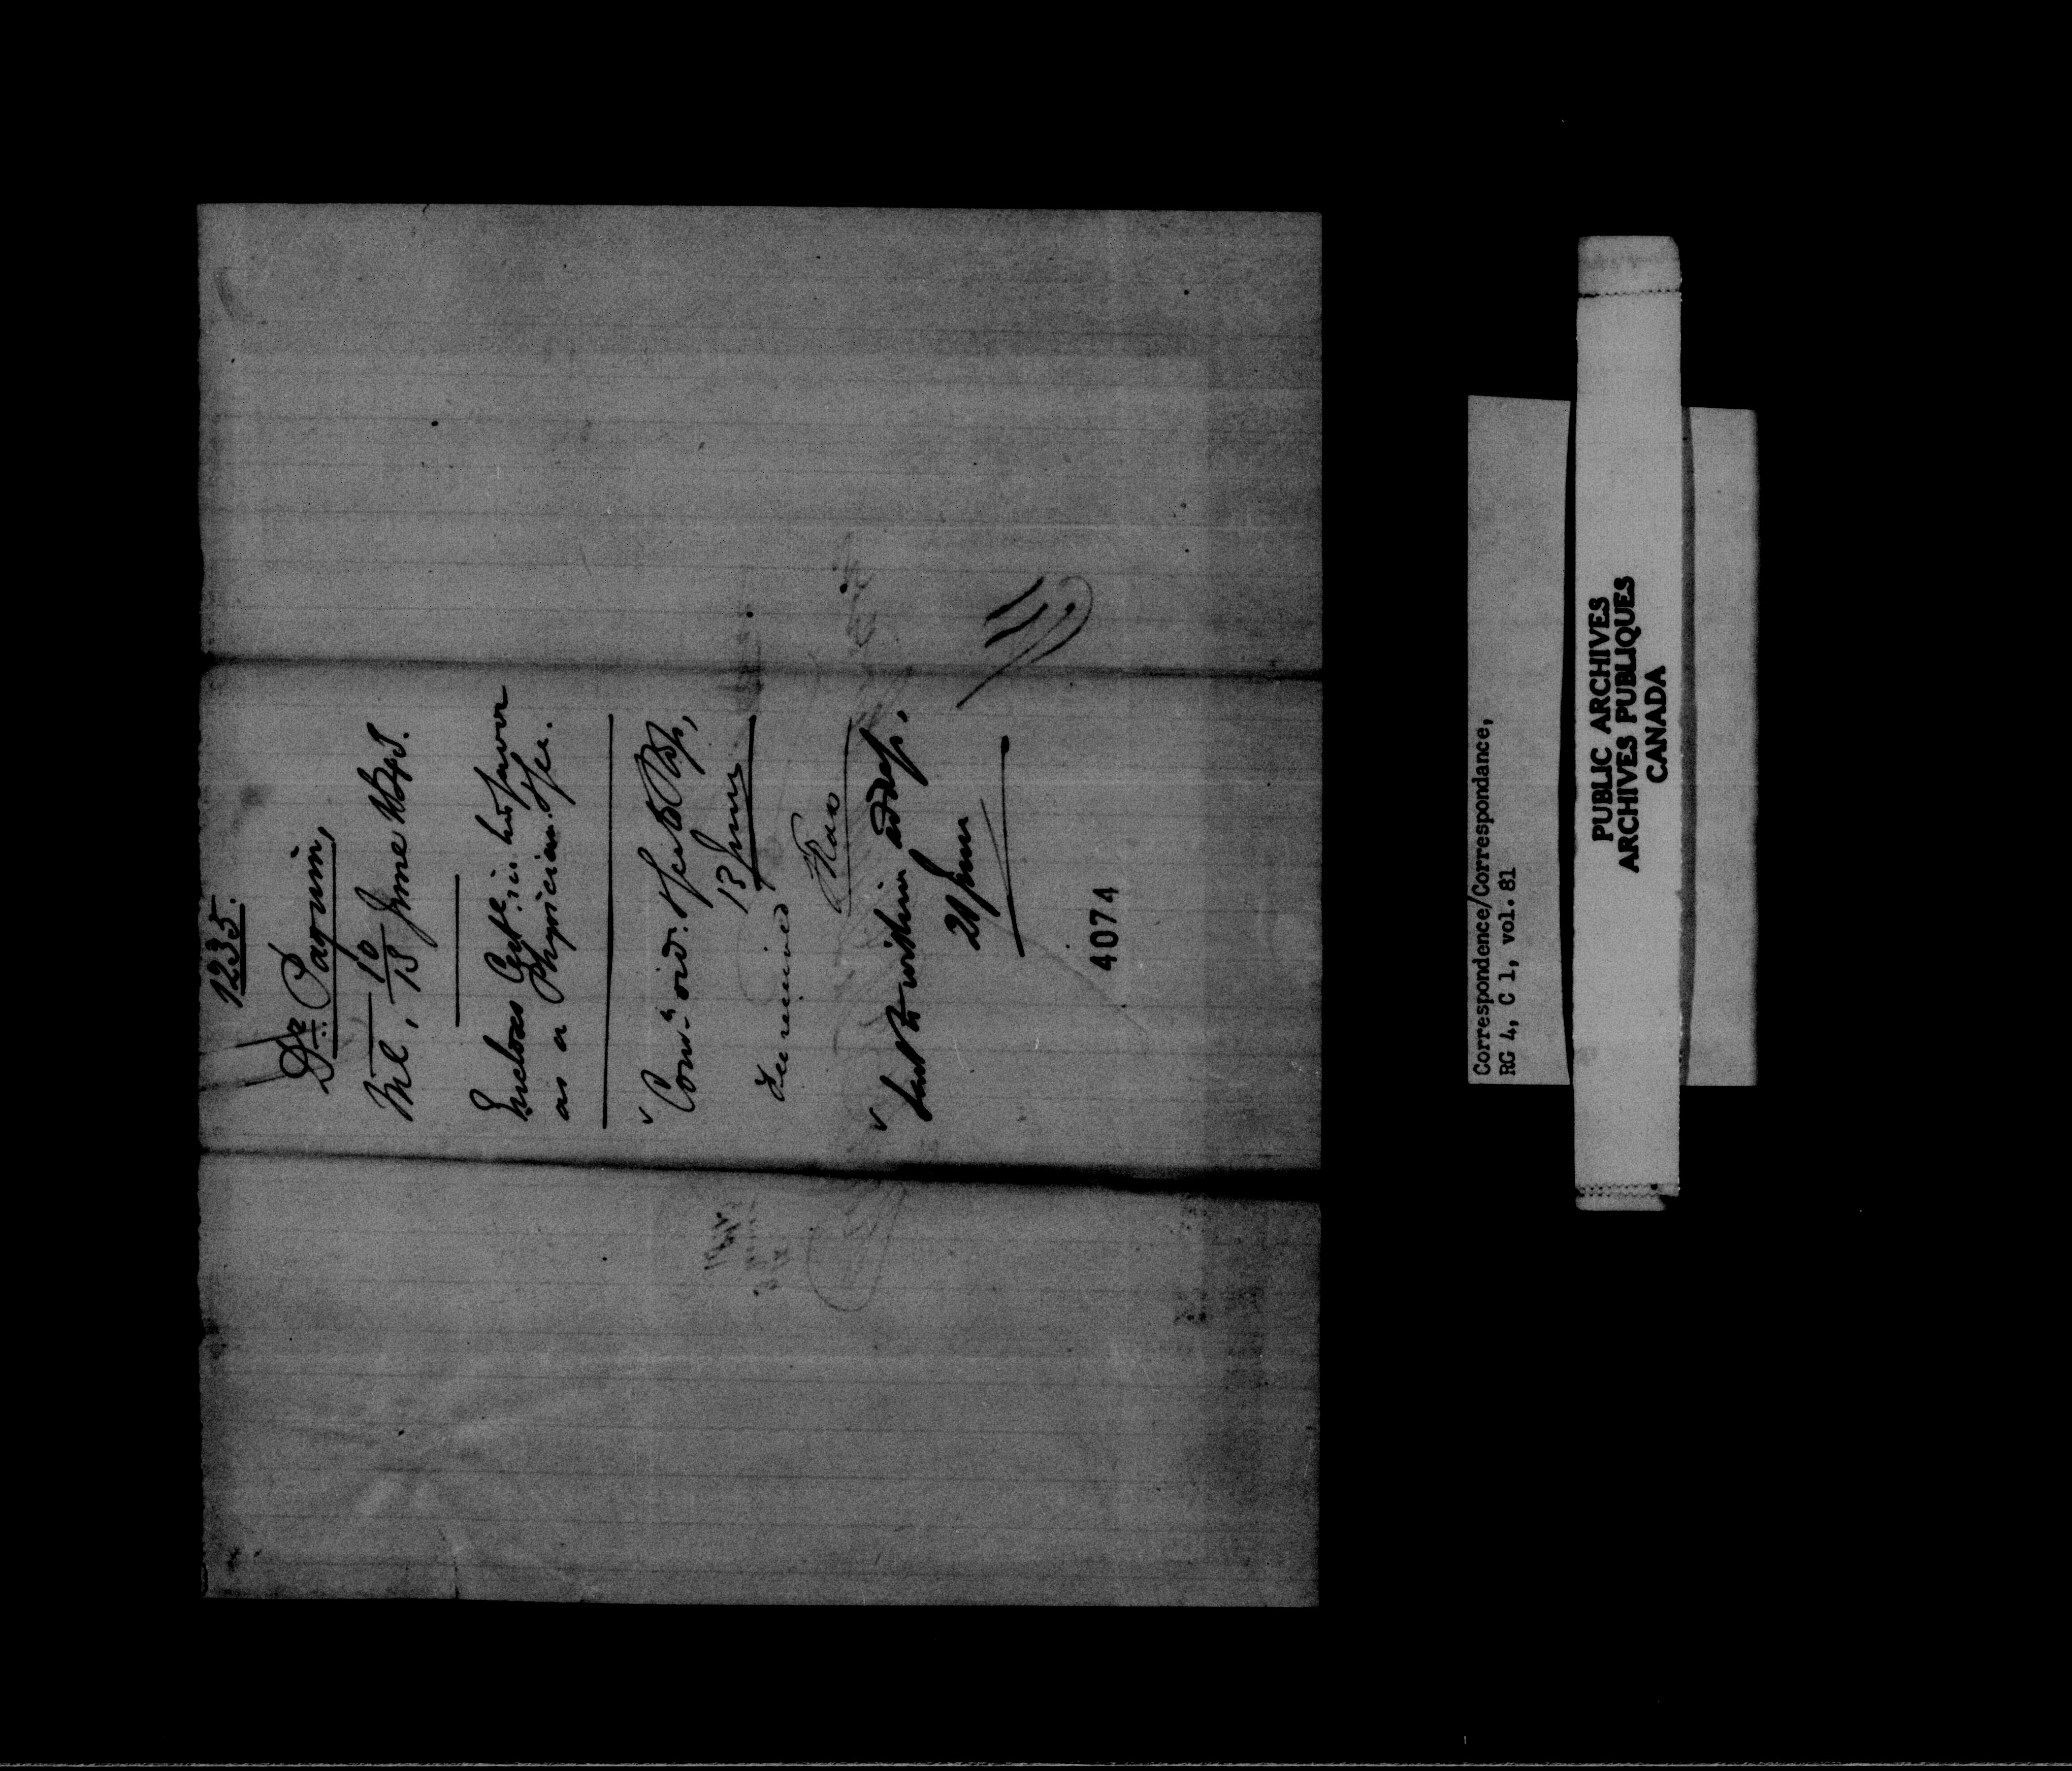 1235.
Dr. Paquin,
Ml, 10/13 June
Encloses Certe. in his favor
as a Physician &ca.
Comn. ord:
13 June
Fee received
Sent to within address,
21 June
4074
Correspondence/Correspondance,
RG 4, C 1, vol. 81
PUBLIC ARCHIVES
ARCHIVES PUBLIQUES
CANADA